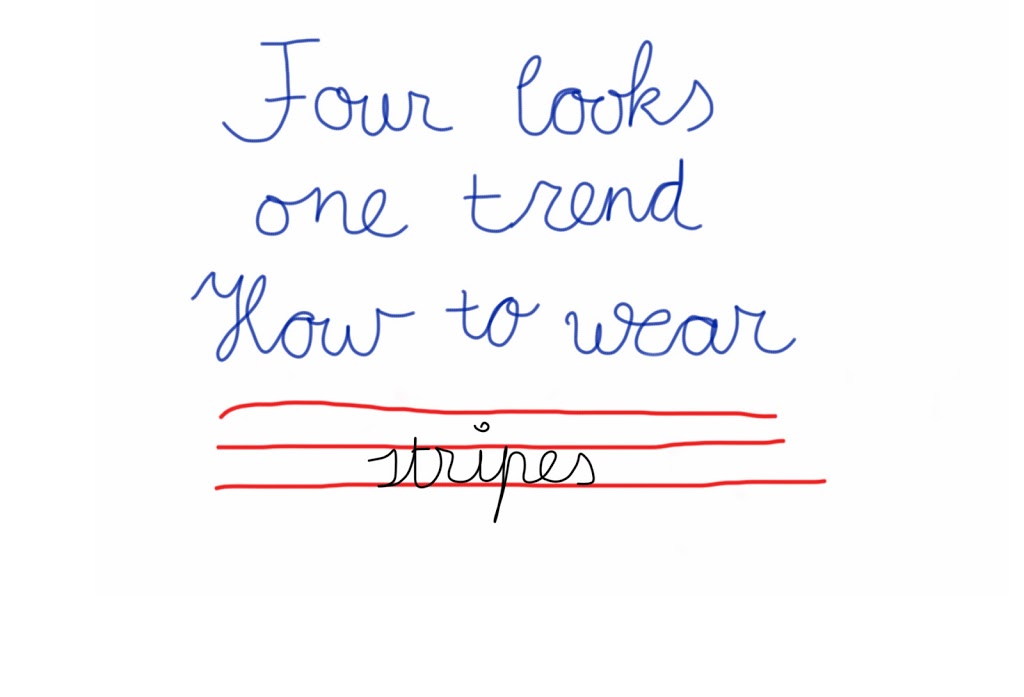 Four looks
one trend
How to wear
stripes